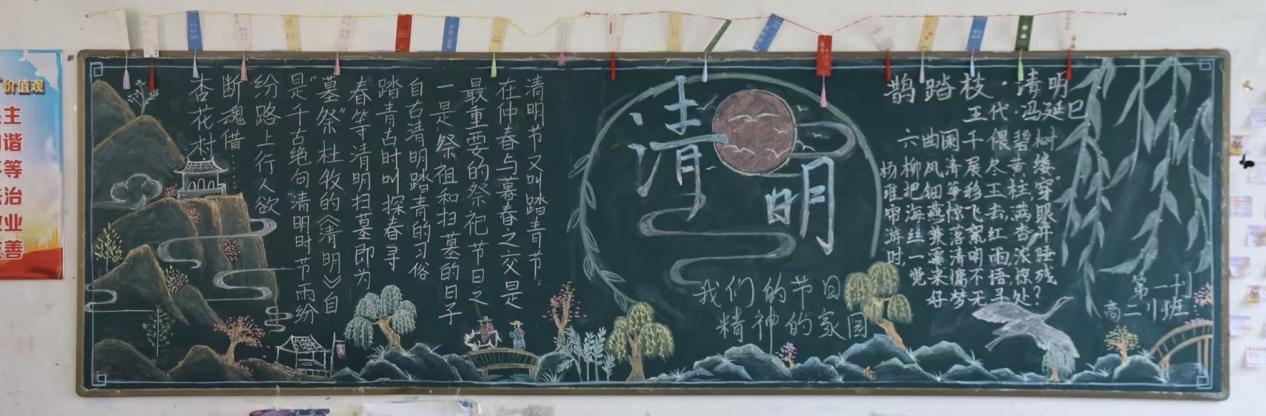 价值观
主
谐
等
治
业
善
清明节又叫踏青节，
在仲春与暮春之交是
最重要的祭祀节日之
一是祭祖和扫墓的日子
自古清明踏青的习俗
踏青古时叫探春寻
春等清明扫墓即为
“墓祭”杜牧的《清明》自
是千古绝句“清明时节雨纷
纷路上行人欲
断魂借……
杏花村”
清明
我们的节日
精神的家园
鹊踏枝·清明
五代·冯延巳
六曲阑干偎碧树
杨柳风清展尽黄缕
谁把细筝移玉柱穿
帘海燕惊飞去满眼
游丝兼落絮红杏开
时一霎清明雨浓睡
觉来清慵悟惊残
好梦无寻处?
高二班